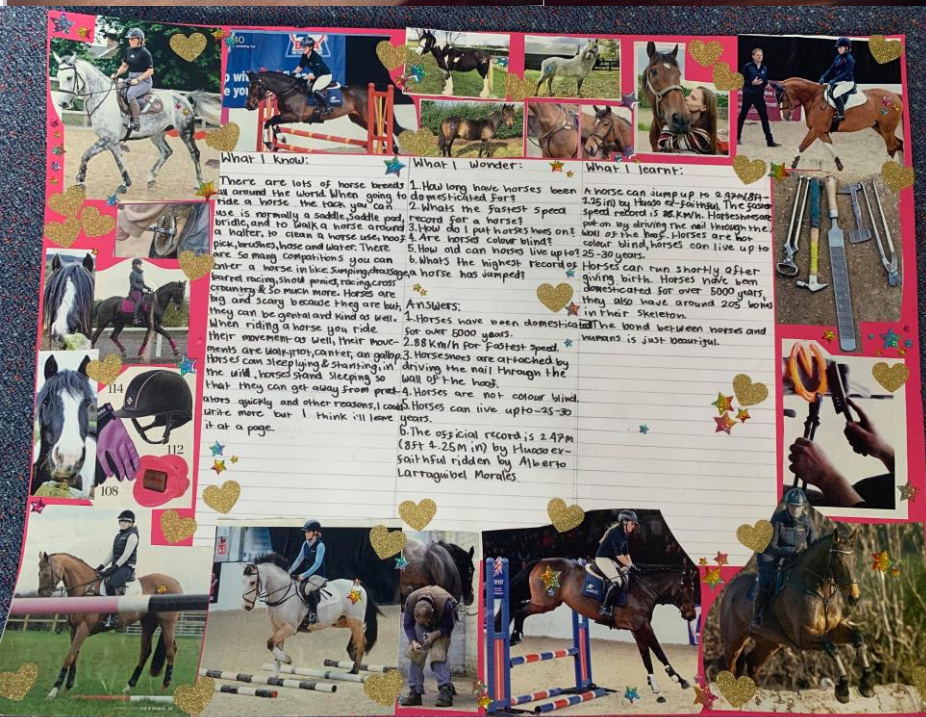 What I know:
There are lots of horse breeds
all around the world. When going to
ride a horse the tack you can
use is normally a saddle, saddle pad,
bridle, and to walk a horse around
a halter, to clean a horse use, hoof
pick, brushes, hose and water. There
are so many compititions you can
enter a horse in like: Jumping, drassage,
barrel racing, show ponies, racing, cross
crountry & so much more. Horses are
big and scary because they are but
they can be gental and kind as well.
When riding a horse you ride
their movement as well, their move-
ments are walk, trot, canter, an gallop.
Horses can sleep lying & stanting, in
the wild, horses stand sleeping so
that they can get away from pred-
ators quickly and other reasons, I could
write more but I think i'll leave
it at a page.
What I wonder:
1. How long have horses been
domesticated for?
2. Whats the fastest speed
record for a horse?
3. How do I put horses hoes on?
4. Are horses colour blind?
5. How old can horses live up to?
6. What's the highest record of
a horse has jumped?
Answers:
1. Horses have been domesticated
for over 5000 years.
2. 88 Km/h for fastest speed.
3. Horseshoes are attached by
driving the nail through the
wall of the hoof.
4. Horses are not colour blind.
5. Horses can live up to -25-30
years.
6. The official record is 2.47m
(8ft 4.25m in) by Huaso er-
faithful ridden by Alberto
Larraguibel Morales.
What I learnt:
A horse can jump up to 2.47m (8ft
by Huaso ex-faithful. The fastest
speed record is 88 Km/h. Horseshoes are
put on by driving the nail through the
wall of the hoof. Horses are not
colour blind, horses can live up to
25-30 years.
Horses can run shortly after
giving birth. Horses have been
domesticated for over 5000 years,
they also have around 205 bones
in their skeleton.
The bond between horses and
humans is just beautiful.
114
112
108